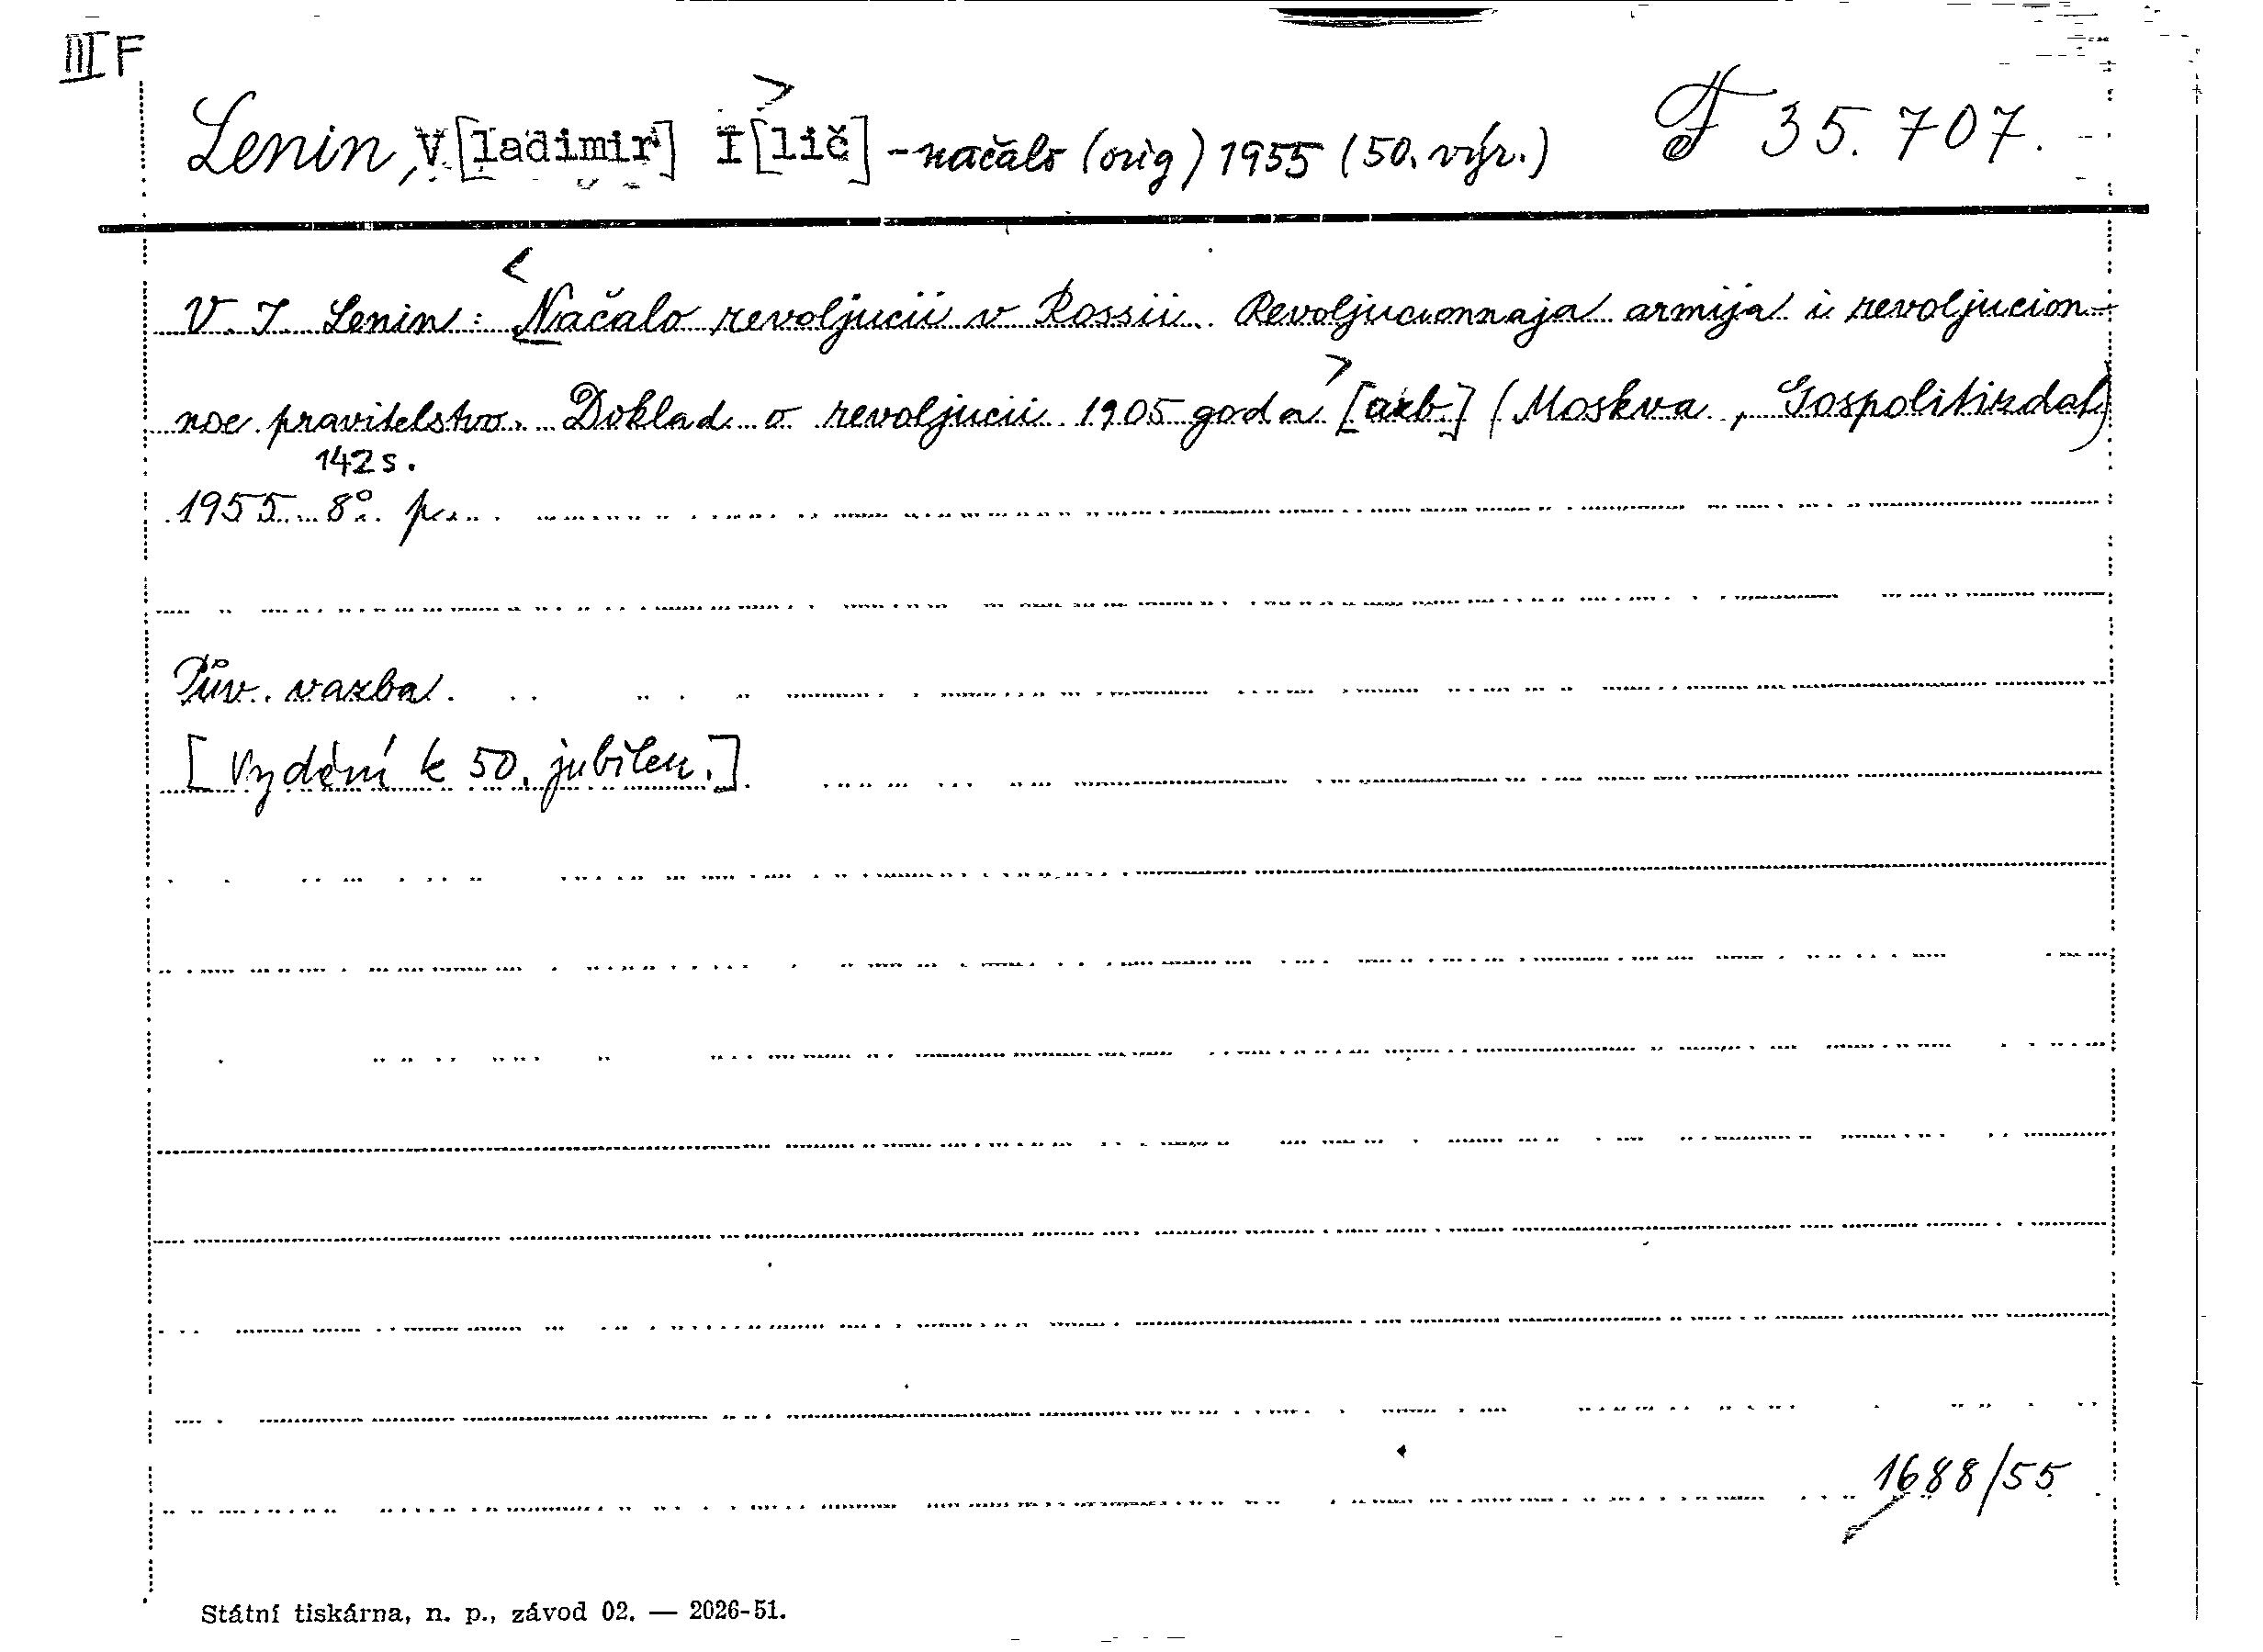 III F
Lenin, V[ladimir] I[lič] - načalo (orig) 1955 (50. výr.) F 35.707.
V. I. Lenin: Načalo revoljucii v Rossii. Revoljucionnaja armija i revoljucion-
noe pravitelstvo. Doklad o revoljucii 1905 goda [azb.] (Moskva, Gospolitizdat)
142 s.
1955 8° p.
Pův. vazba.
[Vydání k 50. jubileu.]
1688/55
Státní tiskárna, n. p., závod 02. — 2026-51.